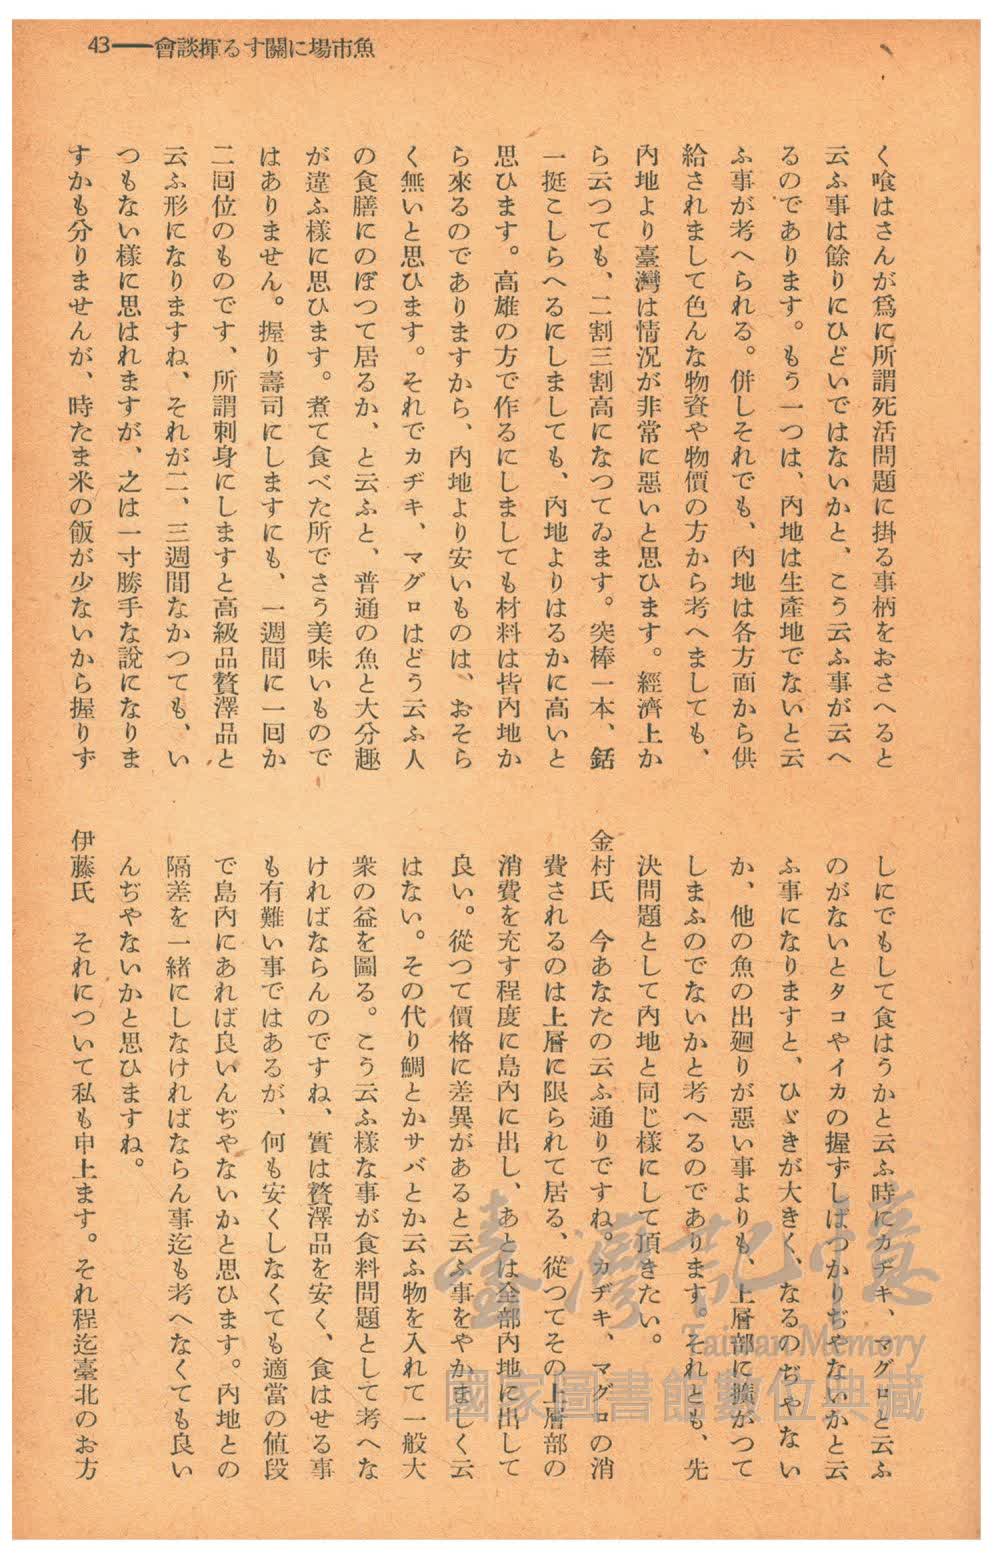 43——會談揮るす關に場市魚
く喰はさんが爲に所謂死活問題に掛る事柄をおさへると
云ふ事は餘りにひどいではないかと、こう云ふ事が云へ
るのであります。もう一つは、內地は生產地でないと云
ふ事が考へられる。併しそれでも、內地は各方面から供
給されまして色んな物資や物價の方から考へましても、
內地より臺灣は情況が非常に惡いと思ひます。經濟上か
ら云つても、二割三割高になつてゐます。突棒一本、銛
一挺こしらへるにしましても、內地よりはるかに高いと
思ひます。高雄の方で作るにしましても材料は皆內地か
ら來るのでありますから、內地より安いものは、おそら
く無いと思ひます。それでカヂキ、マグロはどう云ふ人
の食膳にのぼつて居るか、と云ふと、普通の魚と大分趣
が違ふ樣に思ひます。煮て食べた所でさう美味いもので
はありません。握り壽司にしますにも、一週間に一回か
二回位のものです、所謂刺身にしますと高級品贅澤品と
云ふ形になりますね、それが二、三週間なかつても、い
つもない樣に思はれますが、之は一寸勝手な說になりま
すかも分りませんが、時たま米の飯が少ないから握りず
しにでもして食はうかと云ふ時にカヂキ、マグロと云ふ
のがないとタコやイカの握ずしばつかりぢやないかと云
ふ事になりますと、ひゞきが大きく、なるのぢやない
か、他の魚の出廻りが惡い事よりも、上層部に擴がつて
しまふのでないかと考へるのであります。それとも、先
決問題として內地と同じ樣にして頂きたい。
金村氏　今あなたの云ふ通りですね。カヂキ、マグロの消
費されるのは上層に限られて居る、從つてその上層部の
消費を充す程度に島內に出し、あとは全部內地に出して
良い。從つて價格に差異があると云ふ事をやかましく云
はない。その代り鯛とかサバとか云ふ物を入れて一般大
衆の益を圖る。こう云ふ樣な事が食料問題として考へな
ければならんのですね、實は贅澤品を安く、食はせる事
も有難い事ではあるが、何も安くしなくても適當の値段
で島內にあれば良いんぢやないかと思ひます。內地との
隔差を一緖にしなければならん事迄も考へなくても良い
んぢやないかと思ひますね。
伊藤氏　それについて私も申上ます。それ程迄臺北のお方
臺灣記憶
Taiwan Memory
國家圖書館數位典藏